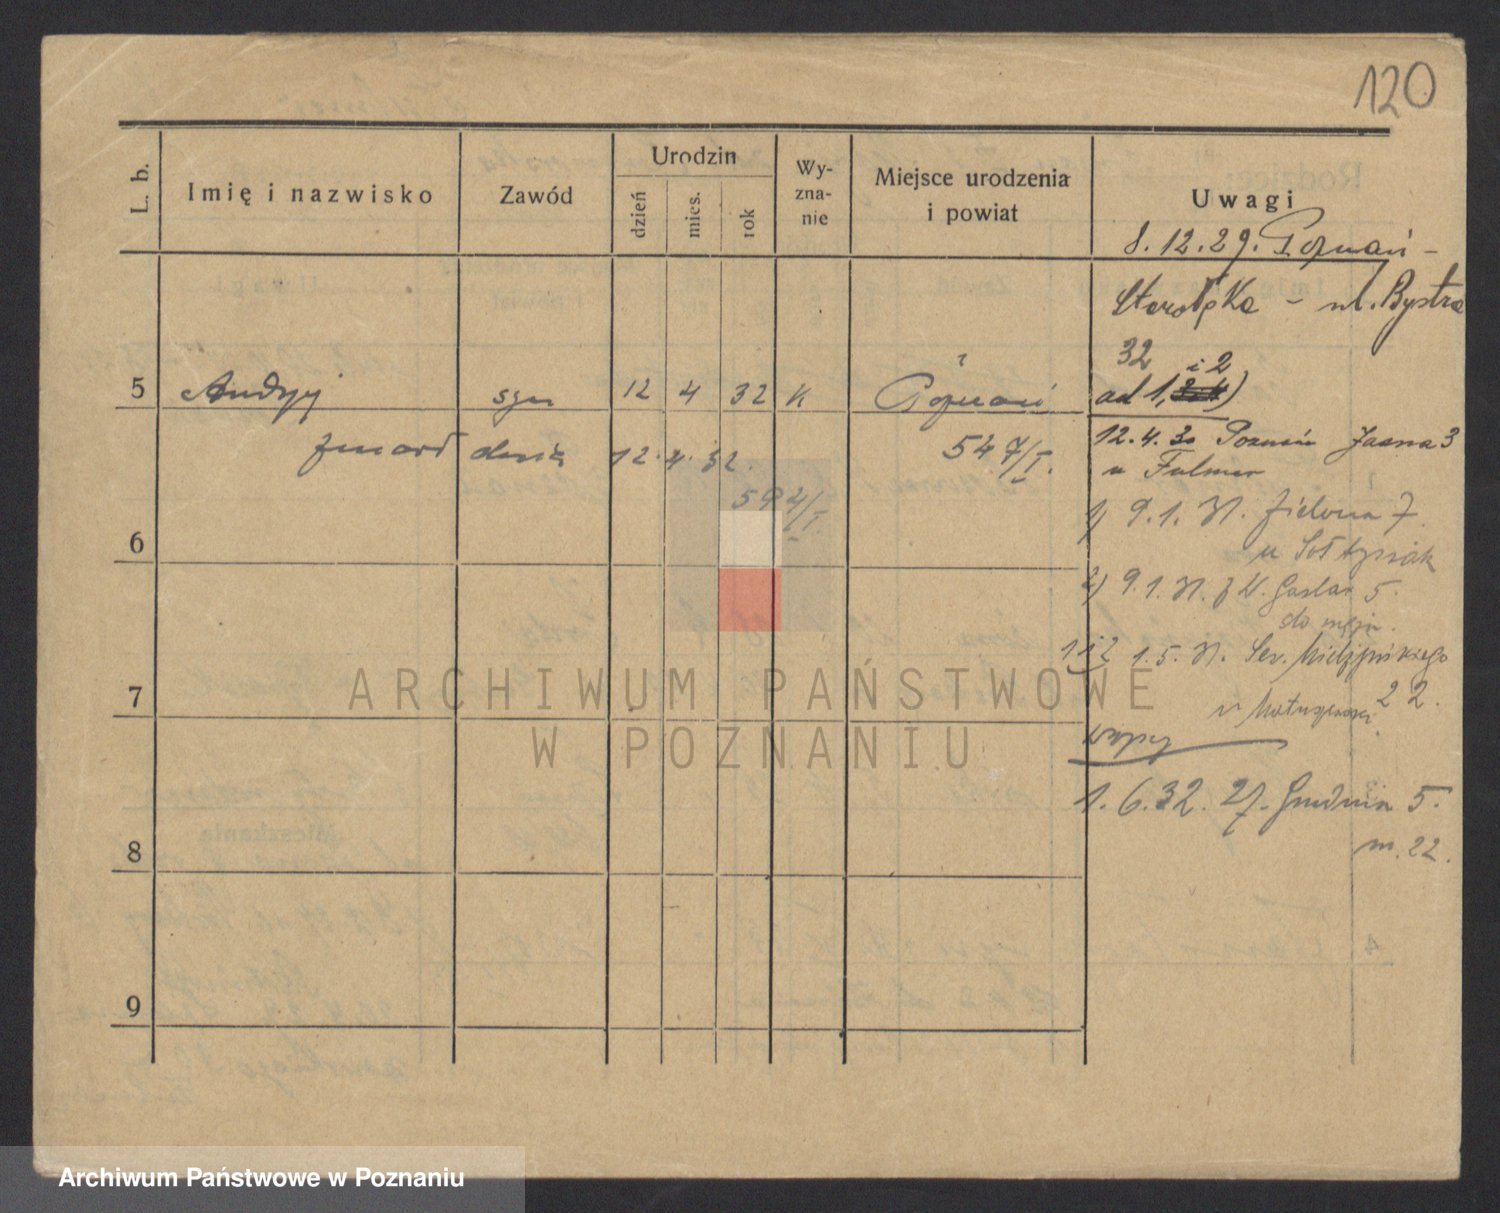 120
L. b.
Imię i nazwisko
Zawód
Urodzin
dzień
mies.
rok
Wy-
zna-
nie
Miejsce urodzenia
i powiat
Uwagi
8. 12. 29. Poznań -
Starołęka - ul. Bystra
32 i 2
ad 1,
5 Andrzej syn 12 4 32 K Poznań
zmarł dnia 12. 4. 32. 547/I.
592/I
12. 4. 30 Poznań Jasna 3
u
1) 9. 1. Zielona 7
u Sołtysiak
2) 9. 1. 5.
do męża.
1 i 2 1. 5. Sew. Mielżyńskiego
22.
u
wszyscy
1. 6. 32. 27. Grudnia 5.
m. 22.
6
7
8
9
ARCHIWUM PAŃSTWOWE
W POZNANIU
Archiwum Państwowe w Poznaniu